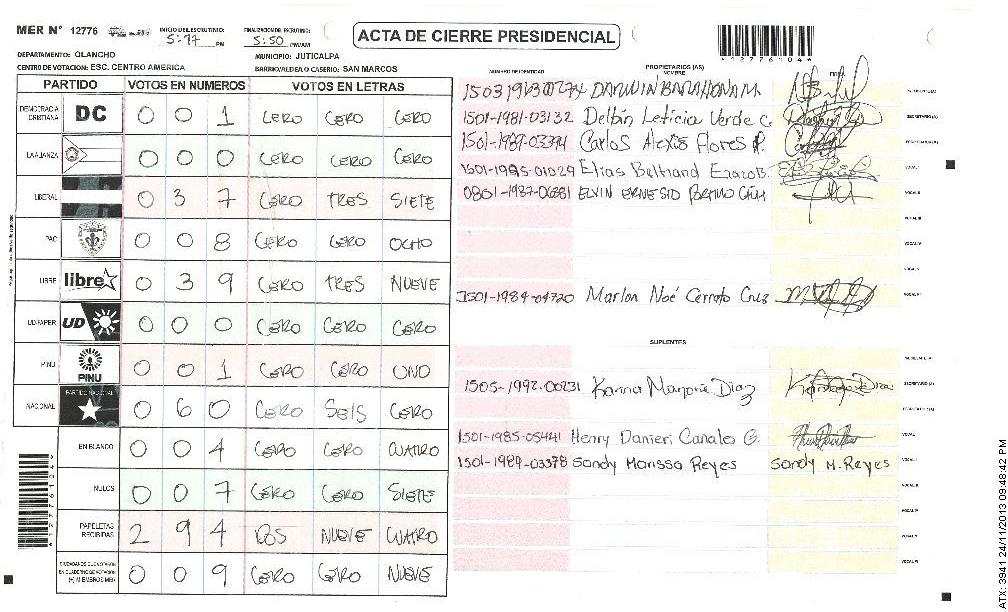 MER N° 12776
INICIO DEL ESCRUTINIO:
PM
FINALIZACION DEL ESCRUTINIO:
5:50 PM/AM
ACTA DE CIERRE PRESIDENCIAL
*12776104*
DEPARTAMENTO: OLANCHO
MUNICIPIO: JUTICALPA
CENTRO DE VOTACION: ESC. CENTRO AMERICA
BARRIO/ALDEA O CASERIO: SAN MARCOS
PARTIDO VOTOS EN NUMEROS VOTOS EN LETRAS
DEMOCRACIA CRISTIANA DC 0 0 1 CERO CERO CERO
LA ALIANZA 0 0 0 CERO CERO CERO
LIBERAL 0 3 7 CERO TRES SIETE
PAC 0 0 8 CERO CERO OCHO
LIBRE libre 0 3 9 CERO TRES NUEVE
UD-FAPER UD 0 0 0 CERO CERO CERO
PINU PINU 0 0 1 CERO CERO UNO
NACIONAL PARTIDO NACIONAL 0 6 0 CERO SEIS CERO
EN BLANCO 0 0 4 CERO CERO CUATRO
NULOS 0 0 7 CERO CERO SIETE
PAPELETAS RECIBIDAS 2 9 4 DOS NUEVE CUATRO
CIUDADANOS QUE VOTARON EN CUADERNO DE VOTACION (+) MIEMBROS MER 0 0 9 CERO CERO NUEVE
NUMERO DE IDENTIDAD PROPIETARIOS (AS) NOMBRE FIRMA
DARWIN BARAHONA M.
1501-1981-03132 Leticia Verde C. SECRETARIO (A)
1501-1989-03394 Carlos Alexis Flores P.
1501-1995-01029 Elias Beltrand VOCAL I
0801-1987-06881 ELVIN ERNESTO VOCAL II
VOCAL III
VOCAL IV
VOCAL V
1501-1984-04720 Marlon Noé Cerrato Cruz VOCAL VI
SUPLENTES
1505-1992-00231 Karina Marjorie Diaz SECRETARIO (A)
1501-1985-05441 Henry Danieri Canales G. VOCAL I
1501-1989-03378 Sandy Marissa Reyes Sandy M. Reyes
VOCAL III
VOCAL IV
VOCAL V
VOCAL VI
*12776104*
ATX: 3941 24/11/2013 09:48:42 PM